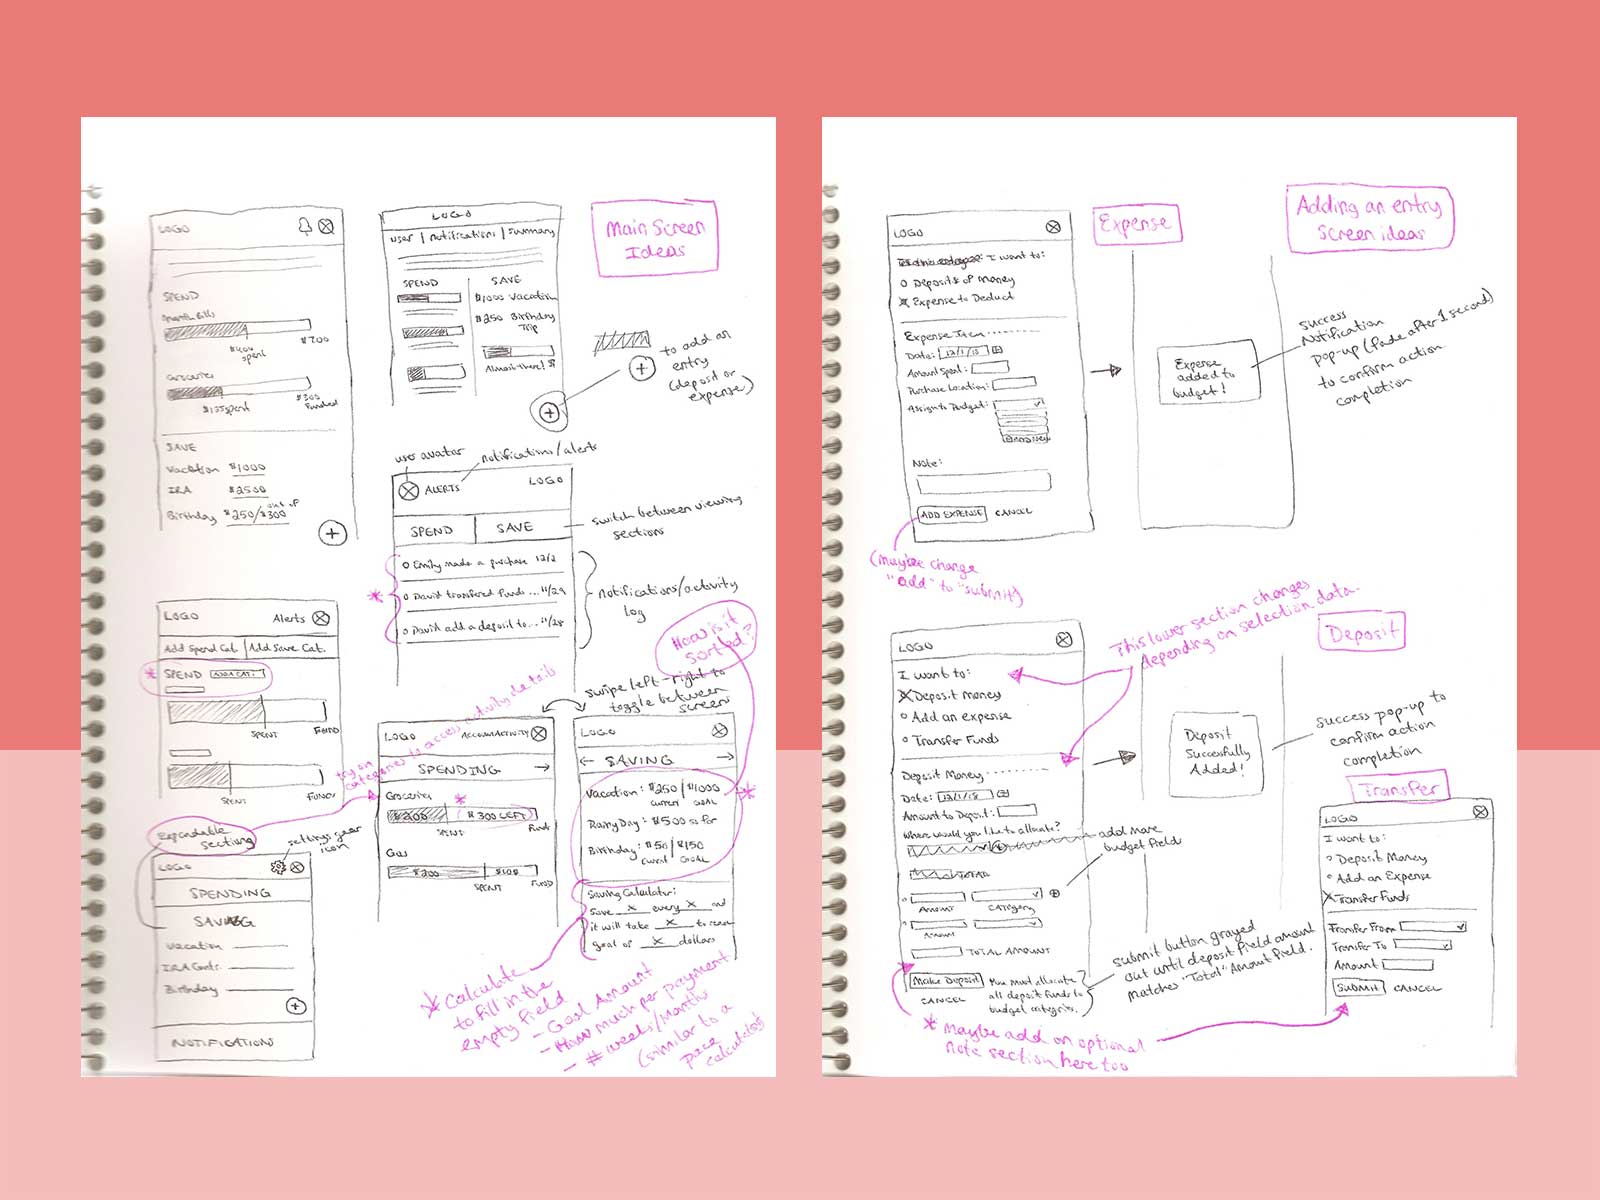 Main Screen
Ideas
LOGO
SPEND
Month Bills
$400
spent
$700
Groceries
$125 spent
$300
Funded
SAVE
Vacation $1000
IRA $2500
Birthday $250/$300
out of
LOGO
user | notifications | summary
SPEND
SAVE
$1,000 Vacation
$250 Birthday
Trip
Almost there!
to add an
entry
(deposit or
expense)
user avatar
notifications/alerts
ALERTS
LOGO
SPEND
SAVE
switch between viewing
sections
Emily made a purchase 12/2
David transfered funds ... 11/29
David add a deposit to... 11/28
notifications/activity
log
How is it
sorted?
LOGO
Alerts
Add Spend Cat.
Add Save Cat.
SPEND
SPENT
FUND
SPENT
swipe left-right to
toggle between
screen
categories to access activity details
LOGO
ACCOUNT ACTIVITY
SPENDING
Groceries
$200
$300 LEFT
SPENT
Funds
Gas
$200
$100
SPENT
FUND
LOGO
SAVING
Vacation: $250/$1000
current GOAL
Rainy Day: $500 so far
Birthday: $50/$150
current GOAL
Saving Calculator:
Save X every X and
it will take X to reach
goal of X dollars
Expandable
sections
settings gear
icon
LOGO
SPENDING
SAVING
Vacation
IRA Contr.
Birthday
NOTIFICATIONS
* Calculate
to fill in the
empty field
- Goal Amount
- How much per payment
- # weeks/months
(similar to a
pace
calculator)
Adding an entry
screen ideas
Expense
LOGO
I want to:
Deposit of Money
Expense to Deduct
Expense Item
Date: 12/1/18
Amount Spent:
Purchase Location:
Assign to Budget:
Note:
ADD EXPENSE CANCEL
(maybe change
"add" to "submit")
Expense
added to
budget!
success
Notification
pop-up (fade after 1 second)
to confirm action
completion
This lower section changes
depending on selection data.
Deposit
LOGO
I want to:
Deposit Money
Add an expense
Transfer Funds
Deposit Money
Date: 12/1/18
Amount to Deposit:
Where would you like to allocate?
TOTAL
Amount
CATEGORY
Amount
TOTAL AMOUNT
Make Deposit
CANCEL
You must allocate
all deposit funds to
budget categories.
add more
budget field
submit button grayed
out until deposit field amount
matches "Total" Amount field.
* Maybe add an optional
note section here too
Deposit
Successfully
Added!
success pop-up to
confirm action
completion
Transfer
LOGO
I want to:
Deposit Money
Add an Expense
Transfer Funds
Transfer From
Transfer To
Amount
SUBMIT CANCEL